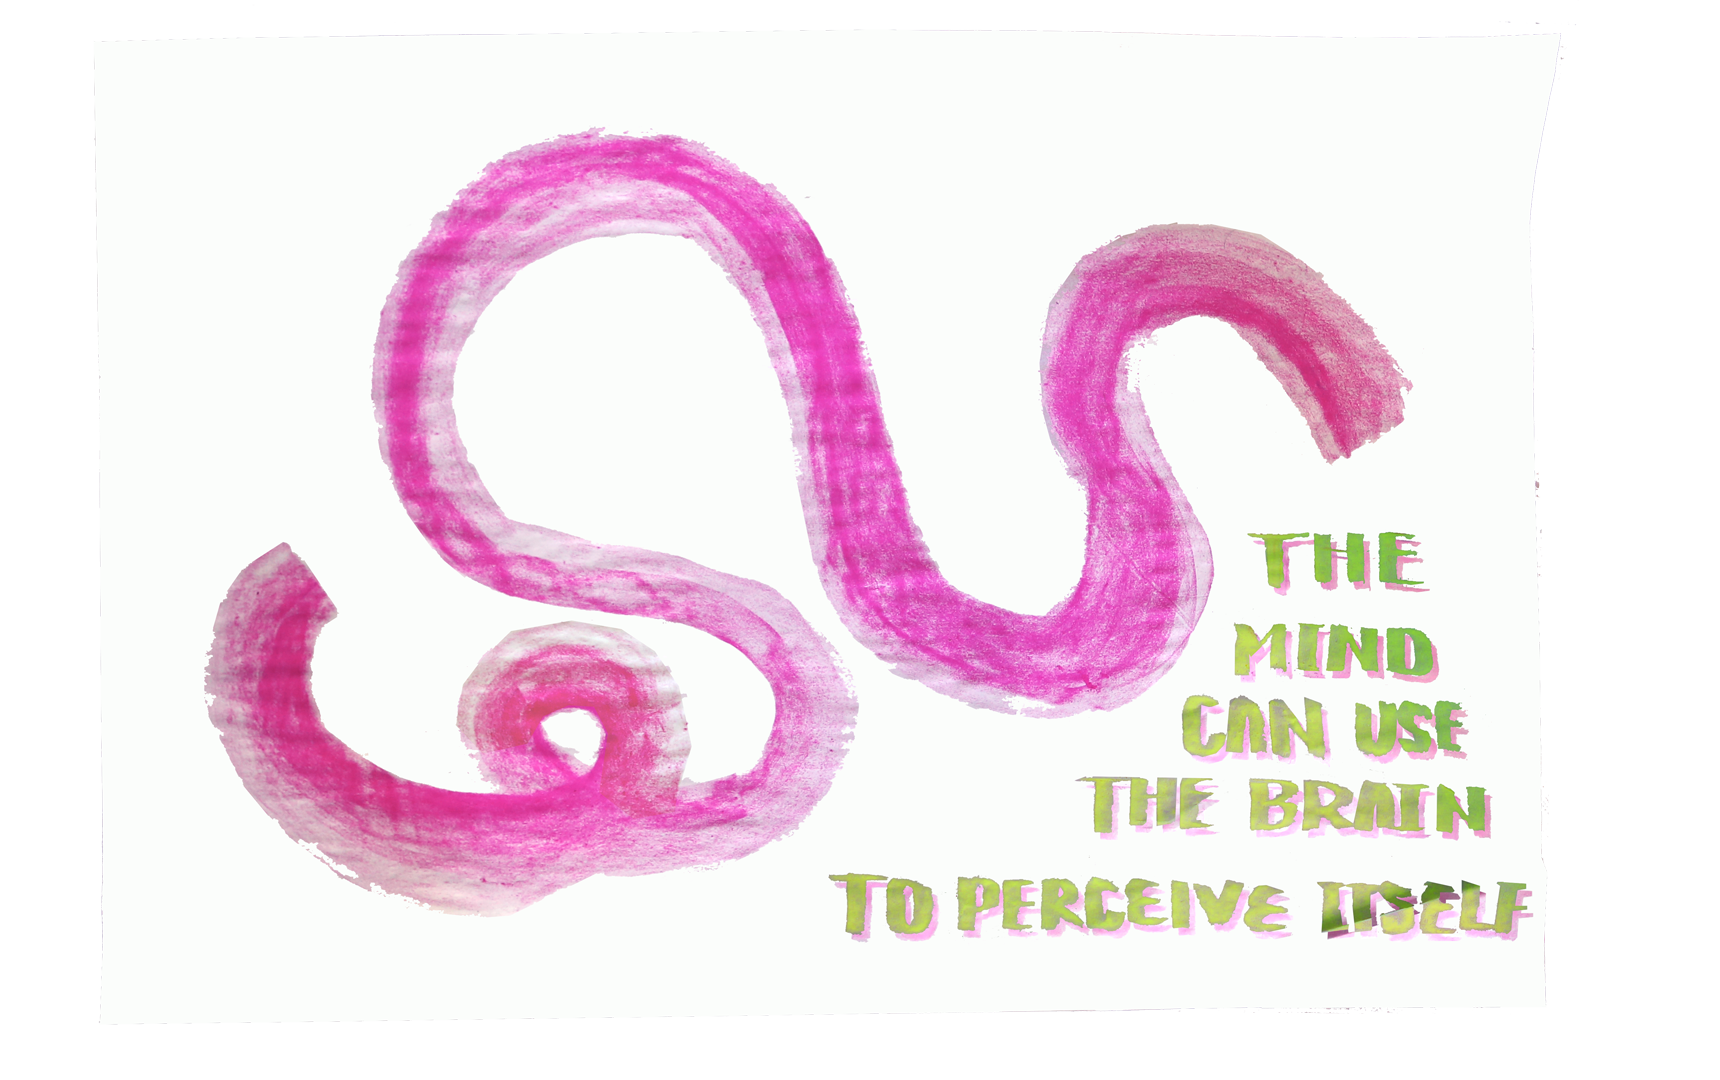 THE
MIND
CAN USE
THE BRAIN
TO PERCEIVE ITSELF